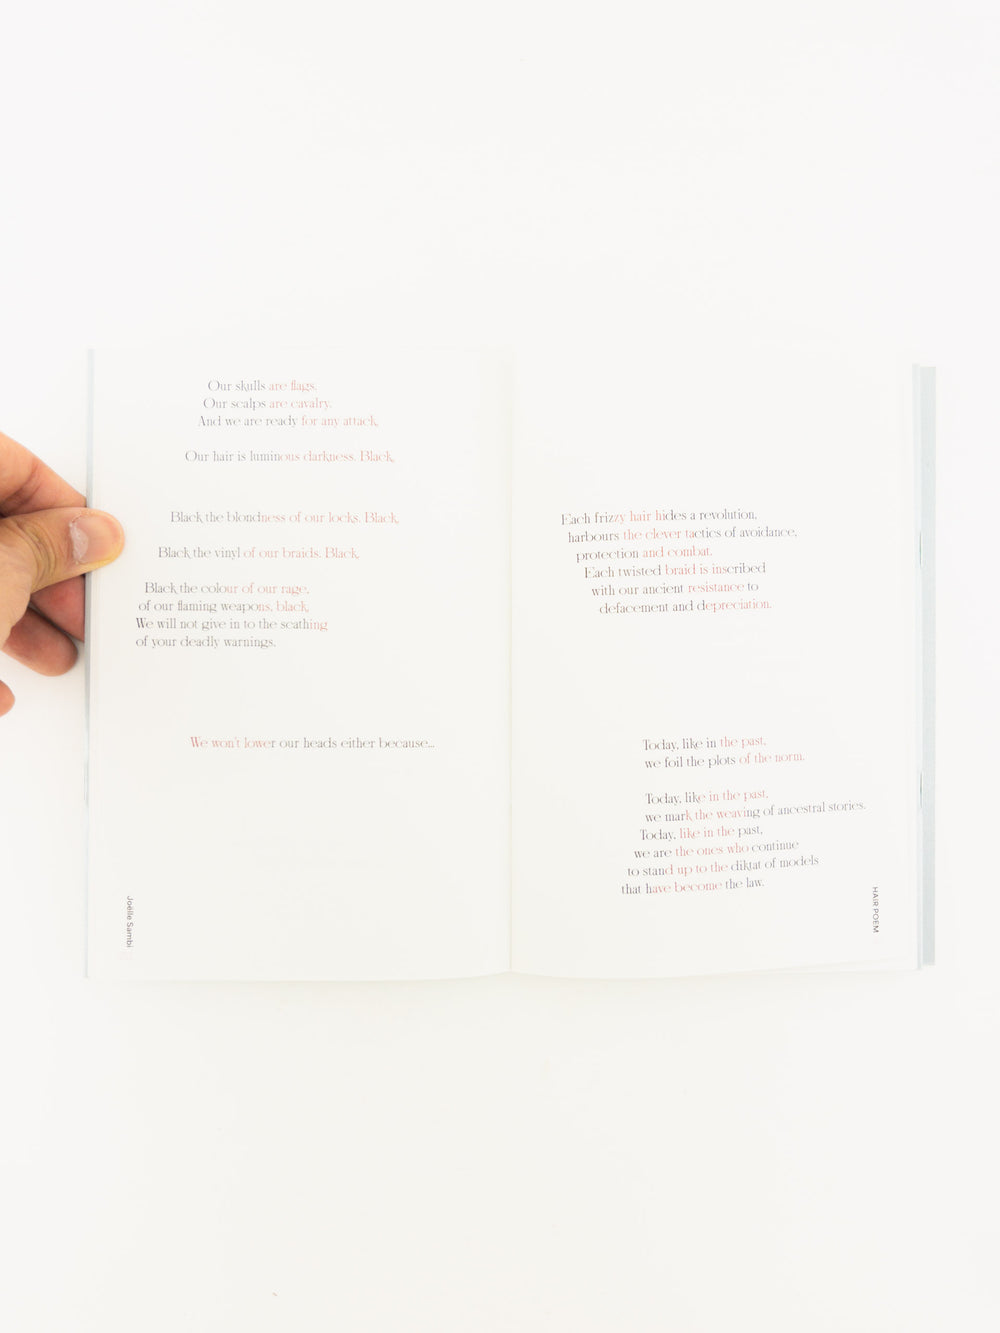 Our skulls are flags.
Our scalps are cavalry.
And we are ready for any attack.
Our hair is luminous darkness. Black.
Black the blondness of our locks. Black.
Black the vinyl of our braids. Black.
Black the colour of our rage,
of our flaming weapons, black.
We will not give in to the scathing
of your deadly warnings.
We won't lower our heads either because...
Joëlle Sambi
Each frizzy hair hides a revolution,
harbours the clever tactics of avoidance,
protection and combat.
Each twisted braid is inscribed
with our ancient resistance to
defacement and depreciation.
Today, like in the past,
we foil the plots of the norm.
Today, like in the past,
we mark the weaving of ancestral stories.
Today, like in the past,
we are the ones who continue
to stand up to the diktat of models
that have become the law.
HAIR POEM